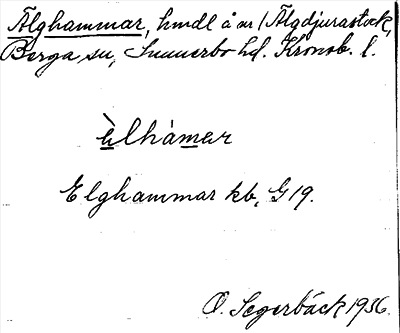 Älghammar, hmdl å ar /Älgdjurastock,
Berga sn, Sunnerbo hd. Kronob. l.
èlhàmar
Elghammar kb, G 19.
O. Segerbäck 1936.